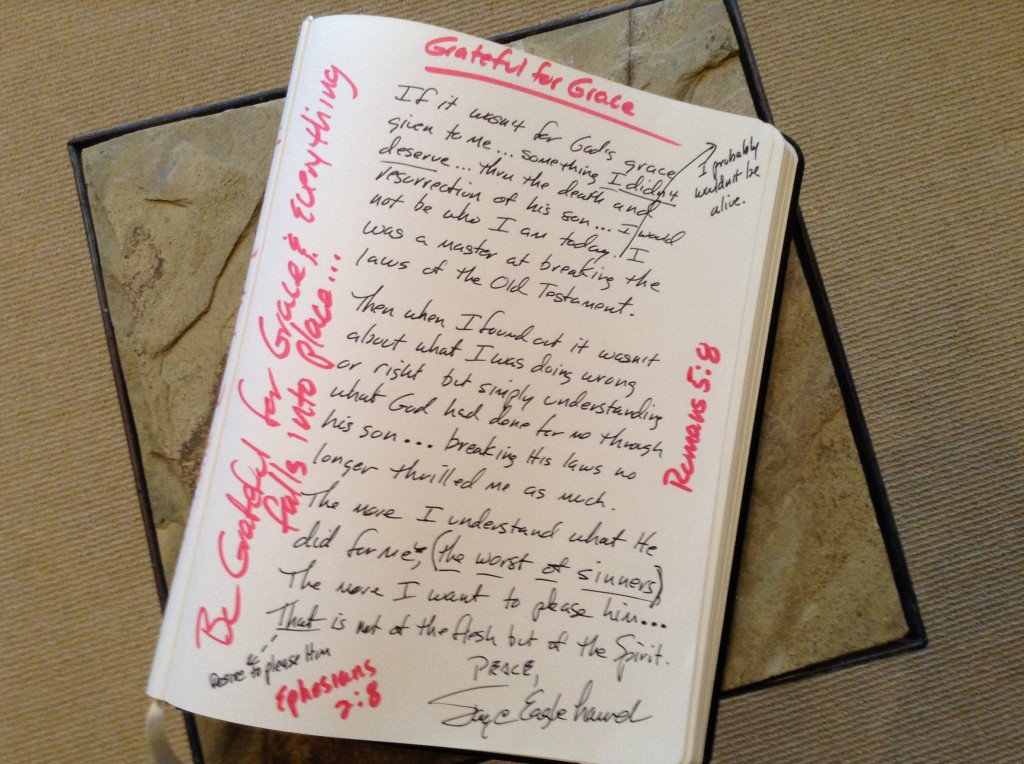 Grateful for Grace
If it wasn't for God's grace
given to me... something I didn't
deserve... thru the death and
resurrection of his son... I would
not be who I am today. I
was a master at breaking the
laws of the Old Testament.
I probably
wouldn't be
alive.
Then when I found out it wasn't
about what I was doing wrong
or right but simply understanding
what God had done for me through
his son... breaking His laws no
longer thrilled me as much.
The more I understand what He
did for me, (the worst of sinners)
The more I want to please him...
That is not of the flesh but of the Spirit.
Desire to please Him
PEACE,
Eagle
Ephesians
2:8
Romans 5:8
Be Grateful for Grace & Everything
falls into place...